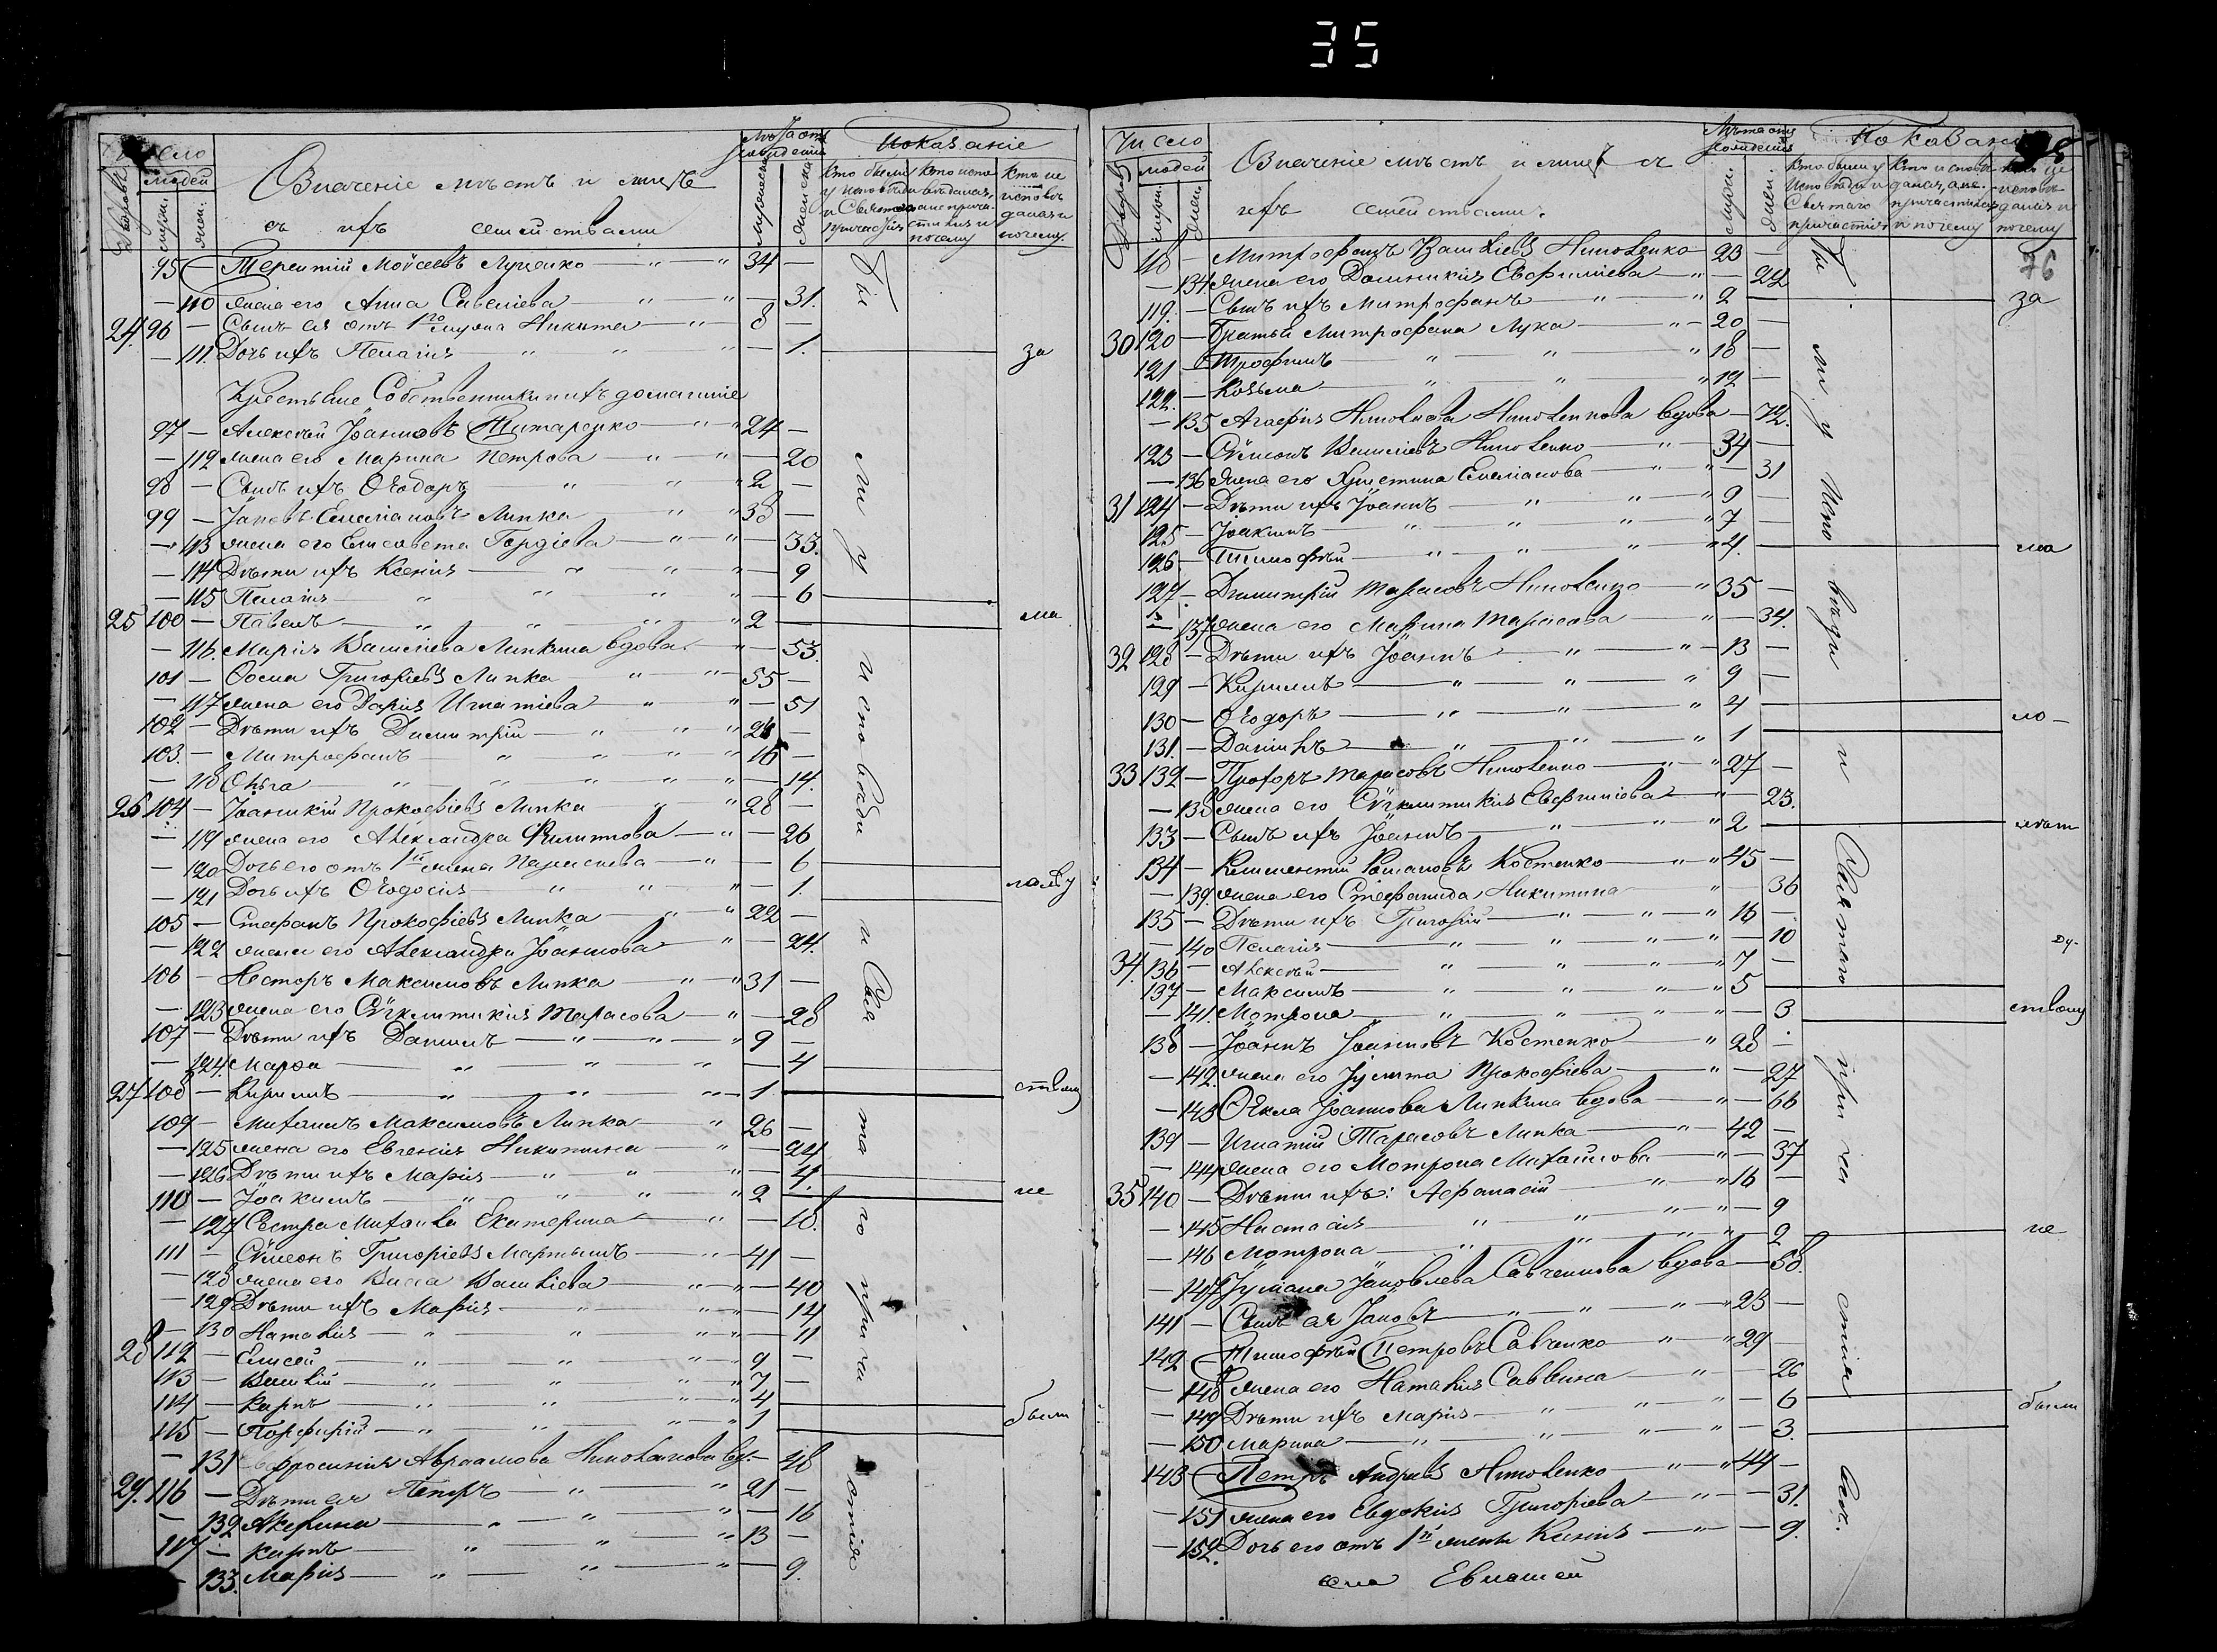 35
Число
Означеніе мѣстъ и лицъ
съ ихъ семействами
Лѣта отъ рожденія
Показаніе
Дворовъ
Людей
мужеск.
женск.
Кто были у исповѣди и Святаго причастія
Кто исповѣдался, а не причастился и почему
Кто не исповѣдался и почему
95 — Терентій Моѵсеевъ Луценко — " — " 34 —
— 110 жена его Анна Савеліева — " " — 31.
24. 96 — Сынъ ея отъ 1го мужа Никита — " — 8 —
— 111. Дочь ихъ Пелагія " " " — 1. за
Крестьяне Собственники и ихъ домашніе
97 — Алексѣй Іоанновъ Титаренко — " — " 24 —
— 112 жена его Марина Петрова — " — " — 20
98 — Сынъ ихъ Ѳеодоръ " " " 2 —
99 — Іаковъ Емеліановъ Липка " " 38 —
— 113 жена его Елисавета Гордіева — " — " — 33.
— 114 Дѣти ихъ Ксенія — " " " — 9
— 115 Пелагія — " " " " — 6
25 100 — Павелъ — " " " " 2 — ма
— 116. Марія Василіева Липкина вдова — " — 53.
101 — Ѳома Григоріевъ Липка " " 55 —
— 117 жена его Дарія Игнатіева — " — " — 51
102 — Дѣти ихъ Димитрій — " " " 21 —
103. — Митрофанъ " " " " 16 —
— 118 Ольга — " " " " — 14.
26 104 — Іоанникій Прокофіевъ Липка " " 28 —
— 119 жена его Александра Филиппова — " — 26
— 120 Дочь его отъ 1й жены Параскева — " — 6
— 121 Дочь ихъ Ѳеодосія — " " " — 1.
105 — Стефанъ Прокофіевъ Липка — " — " 22 —
— 122 жена его Александра Іоаннова — " — 24.
106 — Несторъ Максимовъ Липка — " — " 31 —
— 123 жена его Сѵнклитикія Тарасова — " — 28
107 — Дѣти ихъ Даніилъ — " — " — " 9 —
— 124. Марѳа — " " " — 4
27 108 — Кириллъ — " " " — 1 ствому
109 — Михаилъ Максимовъ Липка — " 26 —
— 125 жена его Евгенія Никитина " — 24
— 126 Дѣти ихъ Марія — " " " — 4.
110 — Іоакимъ — " " " " 2 — не
— 127 Сестра Михаила Екатерина — " — 18.
111 — Сѵмеонъ Григоріевъ Мартынъ — " — 41 —
— 128 жена его Васса Василіева — " — " — 40
— 129 Дѣти ихъ Марія — " " — 14
— 130 Наталія — " " " — 11
28 112 — Елисей — " " " 9 —
113 — Василій — " " " 7 —
114 — Карпъ — " " " 4
115 — Порфирій — " " " 1 были
— 131 Евфросинія Авраамова вд. — 48
29. 116 — Дѣти ея Петръ — " — " 21 —
— 132 Акилина — " — " " — 16
117 — Карпъ — " " " 13 —
— 133. Марія — " — " " — 9.
Бы ли у исповѣди и Свя та го прича стія
Число
Означеніе мѣстъ и лицъ съ
ихъ семействами.
Лѣта отъ рожденія
Показаніе
Дворовъ
Людей
мужск.
женск.
Кто были у исповѣди и Святаго причастія
Кто исповѣдался, а не причастился и почему
Кто не исповѣдался и почему
76
118 — Митрофанъ Василіевъ — 23 —
— 134. жена его Домникія Евфиміева — " — 22
119. — Сынъ ихъ Митрофанъ — " — " 2 — за
30 120 — Братья Митрофана Лука — " — 20 —
121 — Трофимъ " " " 18 —
122. — Козьма — " " " 12 —
— 135 Агафія вдова — 72.
123 — Сѵмеонъ Василіевъ — " — 34 —
— 136 жена его Христина Емеліанова — " " — 31
31 124 — Дѣти ихъ Іоаннъ — " " " 9 —
125 — Іоакимъ — " " " " 7 —
126 — Тимофѣй — " — " " " 4. ма
127 — Димитрій Тарасовъ — " 35 —
— 137 жена его Марина Тарасова — " — 34.
32 128 — Дѣти ихъ Іоаннъ — " — " — 13 —
129 — Кириллъ — " — " — " 9 —
130 — Ѳеодоръ — " — " — " 4 ло —
131. — Даніилъ — " — " — " 1
33 132 — Прохоръ Тарасовъ — " — " 27 —
— 138 жена его Сѵнклитикія Евфиміева — " — 23.
133 — Сынъ ихъ Іоаннъ — " — " — " 2 лѣт
134 — Климентій Романовъ Костенко — " — " 45 —
— 139. жена его Стефанида Никитина — " — 36
135 — Дѣти ихъ Григорій — " — " — " 16 —
— 140 Пелагія — " — " — " — " — 10
34. 136 — Алексѣй — " — " — " — " 7 —
137 — Максимъ — " — " — " — " 5
— 141. Мотрона — " " " " — 3 ствому
138 — Іоаннъ Іоанновъ Костенко — " 28 —
— 142 жена его Іулита Прокофіева — " — 27
— 143 Ѳекла Іоаннова Липкина вдова — " — 66
139 — Игнатій Тарасовъ Липка — " — 42 —
— 144 жена его Мотрона Михайлова — " — 37
35 140 — Дѣти ихъ: Аѳанасій — " — " 16 —
— 145 Настасія — " — " — " — " — 9
— 146 Мотрона — " — " — " — " — 2 не
— 147 Іуліана Іаковлева Савченкова вдова — 58.
141 — Сынъ ея Іаковъ — " — " — " — " 23 —
142 — Тимофѣй Петровъ Савченко — " — " 29 —
— 148 жена его Наталія Саввина — " — 26
— 149 Дѣти ихъ Марія — " — " — " — 6 были
— 150 Марина — " — " — " — " — 3.
143 — Петръ Андреевъ — " — " 44 —
— 151 жена его Евдокія Григоріева — " — 31.
— 152. Дочь его отъ 1й жены Ксенія — " — 9.
Бы ли у испо вѣди и Святаго прича стія